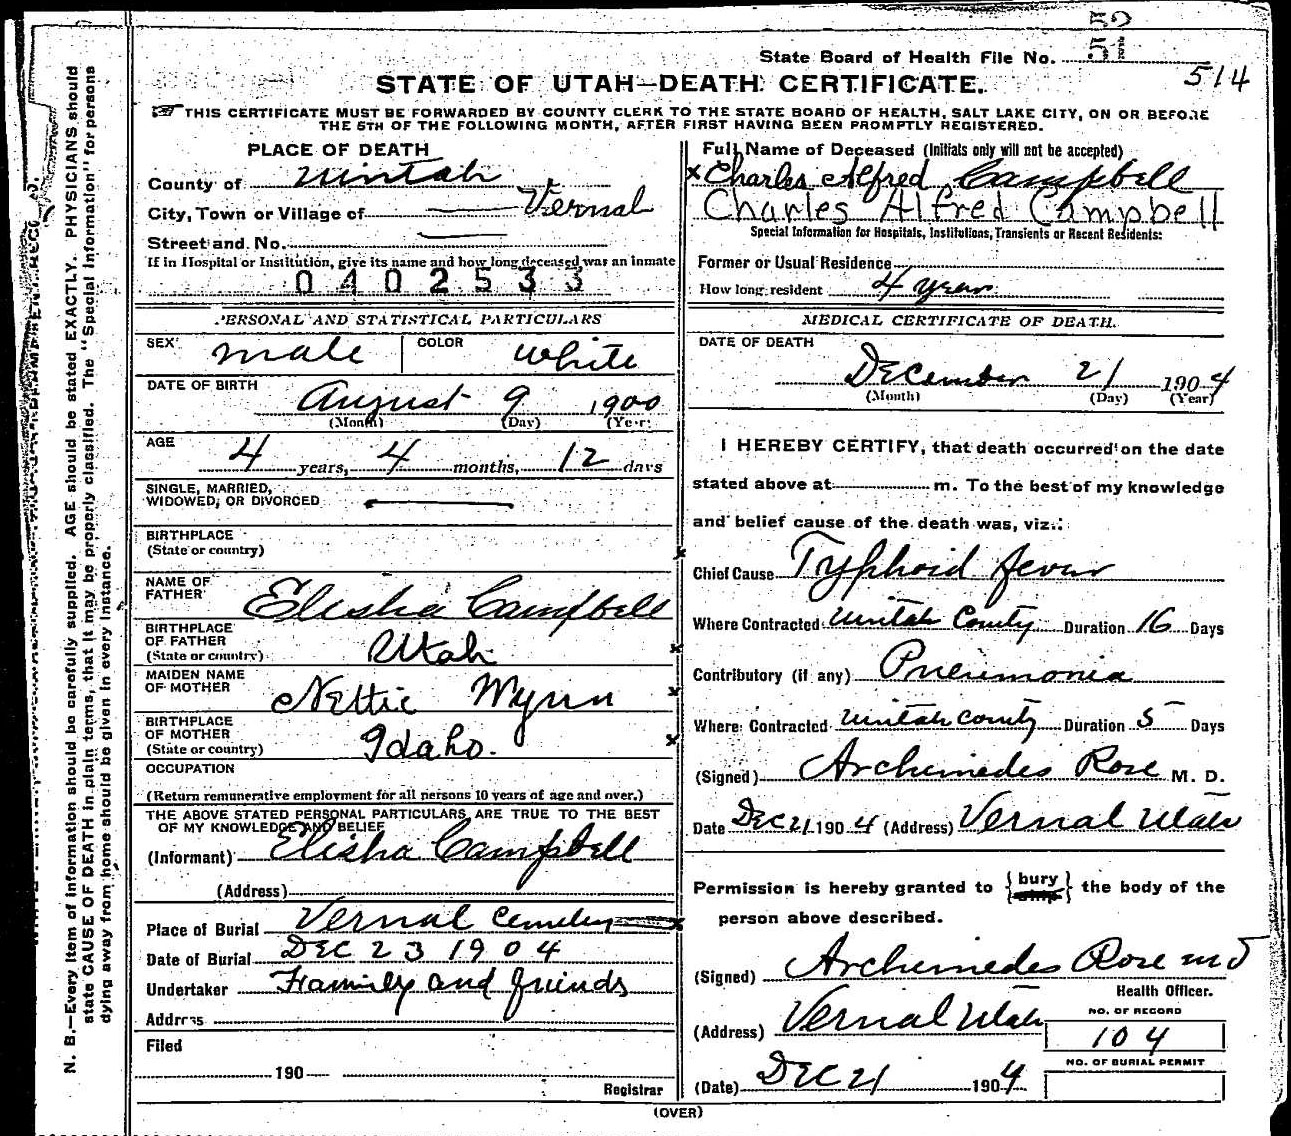 52
51
State Board of Health File No.
514
STATE OF UTAH—DEATH CERTIFICATE.
THIS CERTIFICATE MUST BE FORWARDED BY COUNTY CLERK TO THE STATE BOARD OF HEALTH, SALT LAKE CITY, ON OR BEFORE
THE 5TH OF THE FOLLOWING MONTH, AFTER FIRST HAVING BEEN PROMPTLY REGISTERED.
N. B.—Every item of information should be carefully supplied. AGE should be stated EXACTLY. PHYSICIANS should
state CAUSE OF DEATH in plain terms, that it may be properly classified. The "Special Information" for persons
dying away from home should be given in every instance.
PLACE OF DEATH
County of Uintah
City, Town or Village of Vernal
Street and No.
If in Hospital or Institution, give its name and how long deceased was an inmate
0402533
PERSONAL AND STATISTICAL PARTICULARS
SEX male COLOR White
DATE OF BIRTH
August 9 1900
(Month) (Day) (Year)
AGE
4 years, 4 months, 12 days
SINGLE, MARRIED,
WIDOWED, OR DIVORCED
BIRTHPLACE
(State or country)
NAME OF
FATHER Elisha Campbell
BIRTHPLACE
OF FATHER
(State or country) Utah
MAIDEN NAME
OF MOTHER Nettie Wynn
BIRTHPLACE
OF MOTHER
(State or country) Idaho.
OCCUPATION
(Return remunerative employment for all persons 10 years of age and over.)
THE ABOVE STATED PERSONAL PARTICULARS ARE TRUE TO THE BEST
OF MY KNOWLEDGE AND BELIEF
(Informant) Elisha Campbell
(Address)
Place of Burial Vernal Cemetery
Date of Burial DEC 23 1904
Undertaker Family and friends
Address
Filed
190
Registrar
Full Name of Deceased (Initials only will not be accepted)
x Charles Alfred Campbell
Charles Alfred Campbell
Special Information for Hospitals, Institutions, Transients or Recent Residents:
Former or Usual Residence
How long resident 4 years
MEDICAL CERTIFICATE OF DEATH.
DATE OF DEATH
December 21 1904
(Month) (Day) (Year)
I HEREBY CERTIFY, that death occurred on the date
stated above at m. To the best of my knowledge
and belief cause of the death was, viz.:
Chief Cause Tryphoid fever
Where Contracted Uintah County Duration 16 Days
Contributory (if any) Pneumonia
Where Contracted Uintah county Duration 5 Days
(Signed) Archimedes Rose M. D.
Date Dec 21 1904 (Address) Vernal Utah
Permission is hereby granted to {bury ship} the body of the
person above described.
(Signed) Archimedes Rose M D
Health Officer.
(Address) Vernal Utah
NO. OF RECORD
104
NO. OF BURIAL PERMIT
(Date) DEC 21 1904
(OVER)